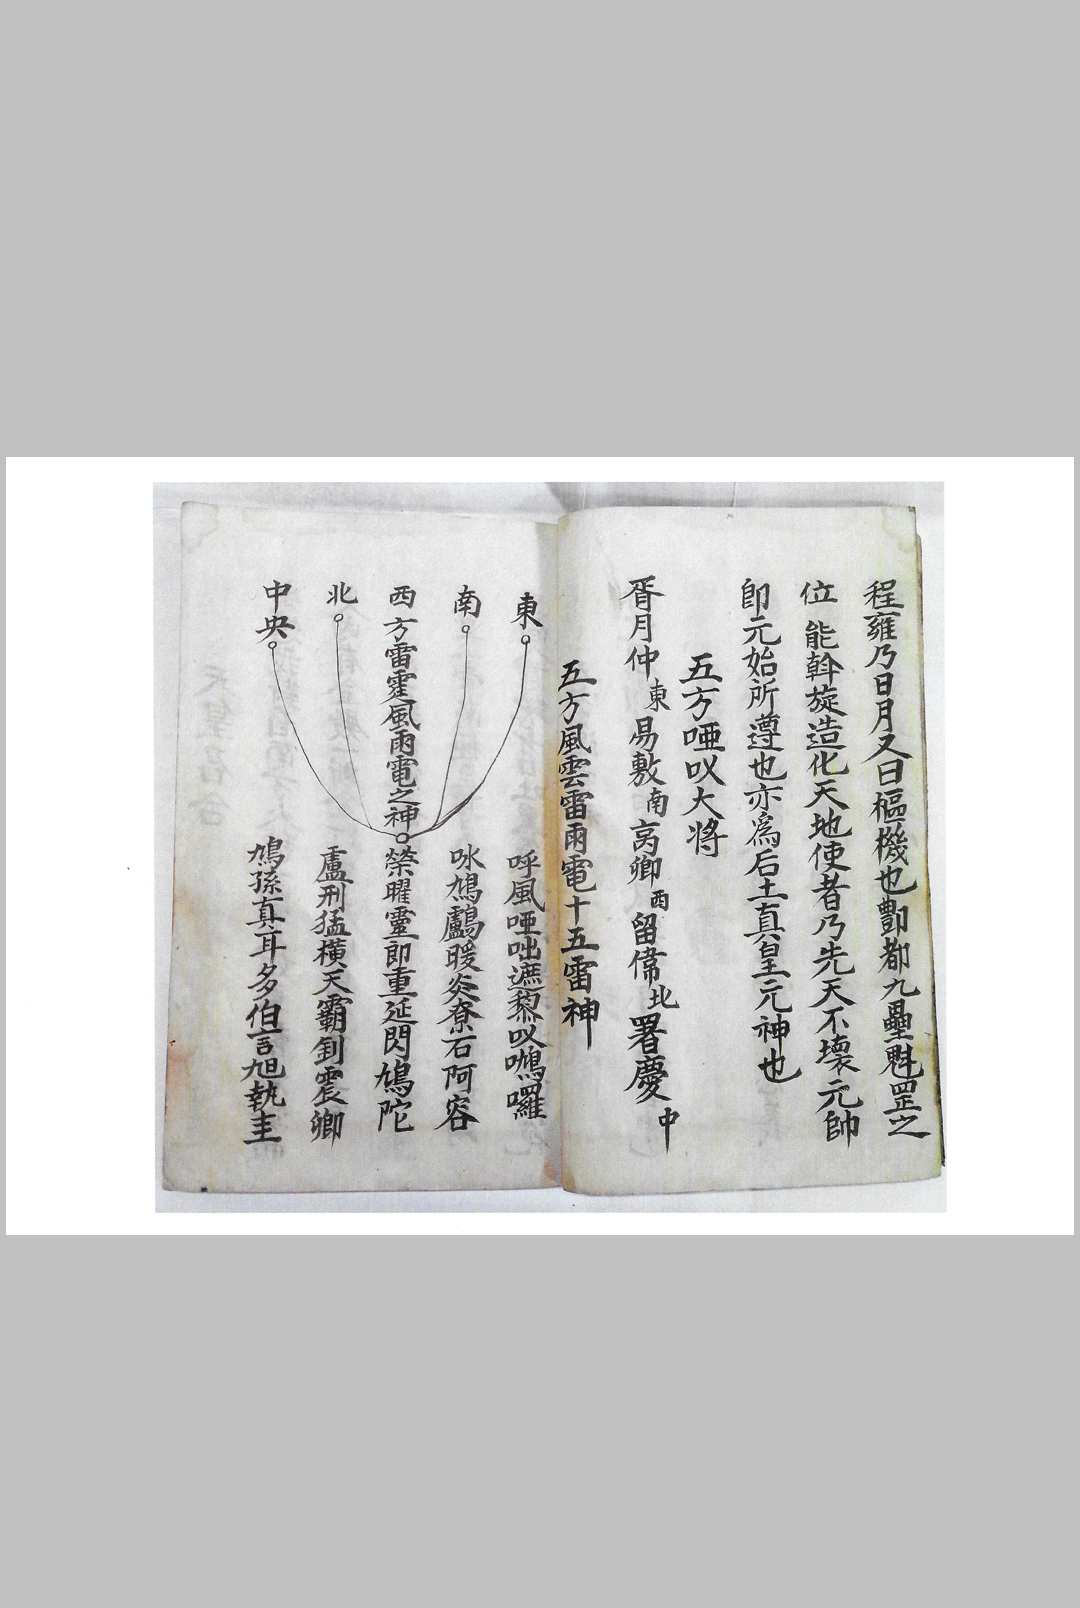 程雍乃日月又曰樞機也酆都九壘魁罡之
位能斡旋造化天地使者乃先天不壞元帥
卽元始所遵也亦為后土真皇元神也
五方啞㕥大将
胥月仲東易敷南卿西留北署慶中
五方風雲雷雨電十五雷神
東 呼風啞咄遮黎㕥囉
南 咏鳩鸕暖炎尞石阿容
西方雷霆風雨電之神 榮曜靈即重延閃鳩陀
北 盧刑猛橫天霸釗震卿
中央 鳩孫真耳多伯言旭執圭